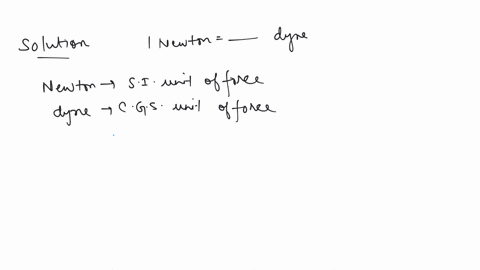 Solution 1 Newton = __ dyne
Newton → S.I. unit of force
dyne → C.G.S. unit of force